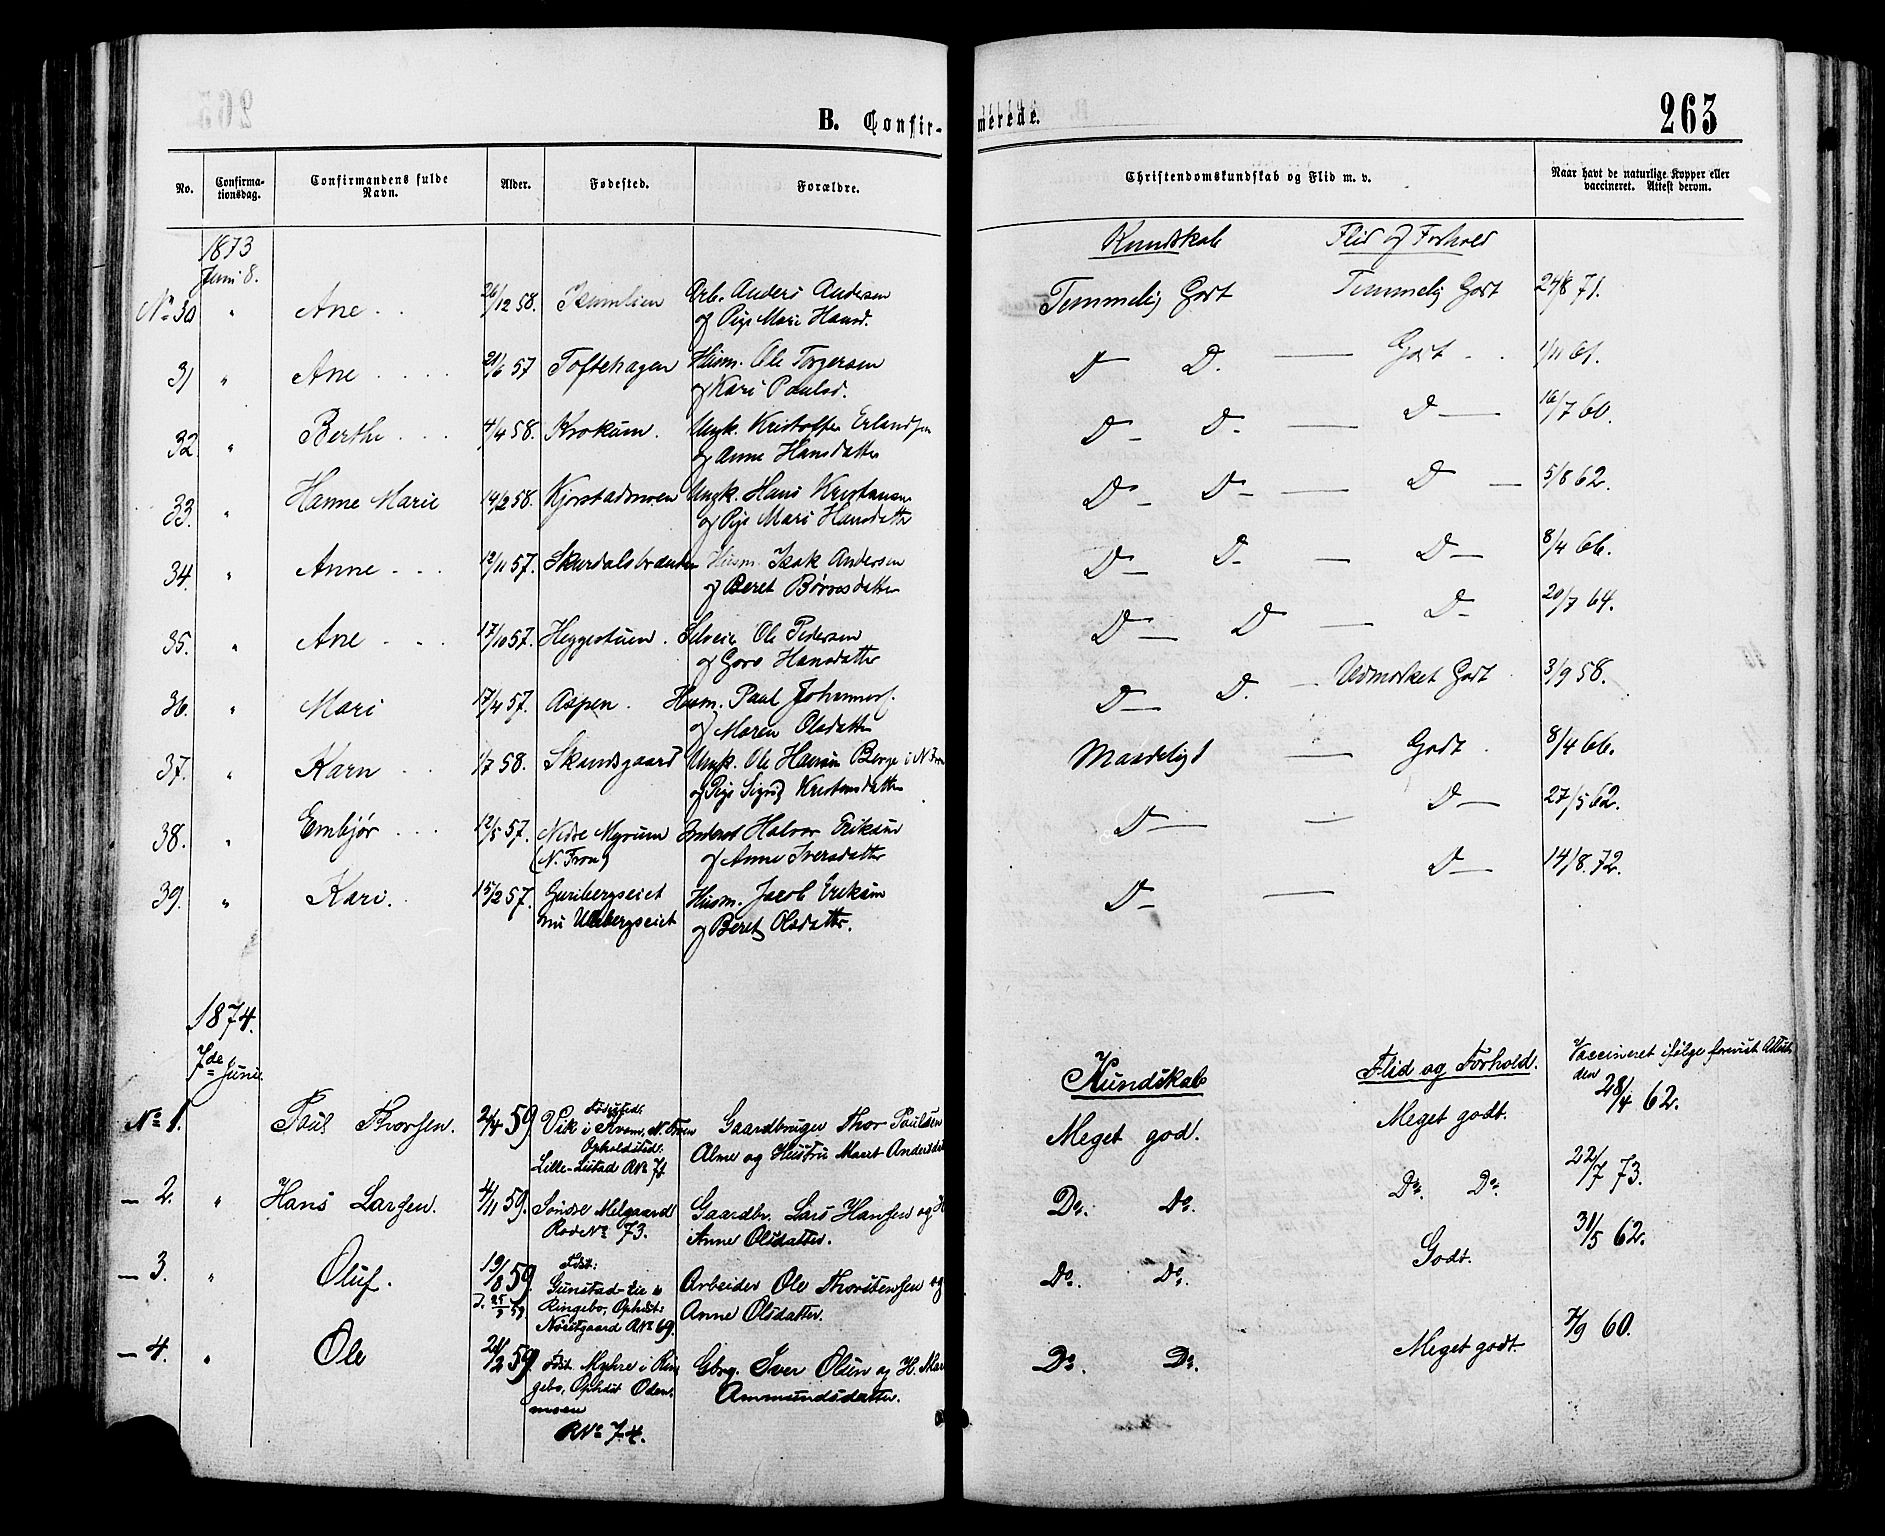 B. Confir-
merede.
263
No.
Confirma-
tionsdag.
Confirmandens fulde
Navn.
Alder.
Fødested.
Forældre.
Christendomskundskab og Flid m. v.
Naar havt de naturlige Kopper eller
vaccineret. Attest derom.
1873
Juni 8.
Kundskab
Flid og Forhold
No 30 " Ane 26/12 58. Arb. Anders Andersen
og Pige Mari Hansd.
Temmelig Godt Temmelig Godt 24/8 71.
31 " Ane 21/6 57 Toftehagen Husm. Ole Torgersen
og Kari Paulsd.
D D. — Godt 1/11 61.
32. " Berthe 4/4 58. Krokum. Ungk. Kristoffer Erlandsen
og Anne Hansdatter
D D. — D — 16/7 60.
33. " Hanne Marie 14/2 58. Kjorstadmoen Ungk. Hans Kristiansen
og Pige Mari Hansdatter
D D — D — 5/8 62.
34. " Anne 12/11 57. Skurdalsbrænden Husm. Isak Andersen
og Beret Børresdatter
D D — D 8/4 66.
35. " Ane 17/10 57. Heggestuen. Selveier Ole Pedersen
og Goro Hansdatter
D D — D 20/7 64.
36. " Mari 17/4 57. Aspen. Husm. Paul Johanness.
og Maren Olsdatter
D D. — Udmærket Godt 3/9 58.
37. " Karn 1/7 58. Skandsgaard Ungk. Ole Hansen Berge i N. Fron
og Pige Sigrid Kristensdatter
Maadeligt — Godt. 8/4 66.
38. " Embjør 12/5 57. Nedre Myrum
(N. Fron)
Inderst Halvor Eriksen
og Anne Iversdatter
D — D 27/5 62.
39. " Kari. 15/2 57. Guribergseiet
nu Ulebergseiet
Husm. Jacob Eriksen
og Beret Olsdatter.
D — D 14/8. 72.
1874.
7de Juni.
Kundskab
Flid og Forhold.
Vaccineret ifølge forevist Attest
den
No 1. Paul Thorsen. 2/4 59 Fødested:
Vik i Kvam, N. Fron
Opholdsted:
Lille-Listad RNo 71
Gaardbruger Thor Paulsen
Alme og Hustru Maret Andersdat
Meget god. Meget godt. 28/4 62.
— 2. " Hans Larsen. 4/11 59. Søndre Melgaard
Rode No 73.
Gaardbr. Lars Hansen og H
Anne Olsdatter.
Do. Do. Do. Do. 22/7 73.
— 3. " Oluf. 19/8 59
Fdst:
Gunstad-eie i
Ringebo, Ophdst:
Nørstgaard RNo 69.
Arbeider Ole Thorstensen og
Anne Olsdatter.
Do. Do. Godt. 31/5 62.
— 4. " Ole 24/2 59 Fdst. Myhre i Rin-
gebo, Ophdst Oden-
moen
RNo 74.
Gbrg. Iver Olsen og H. Mar
Ammundsdatter.
Do. Do. Meget godt. 7/9 60.